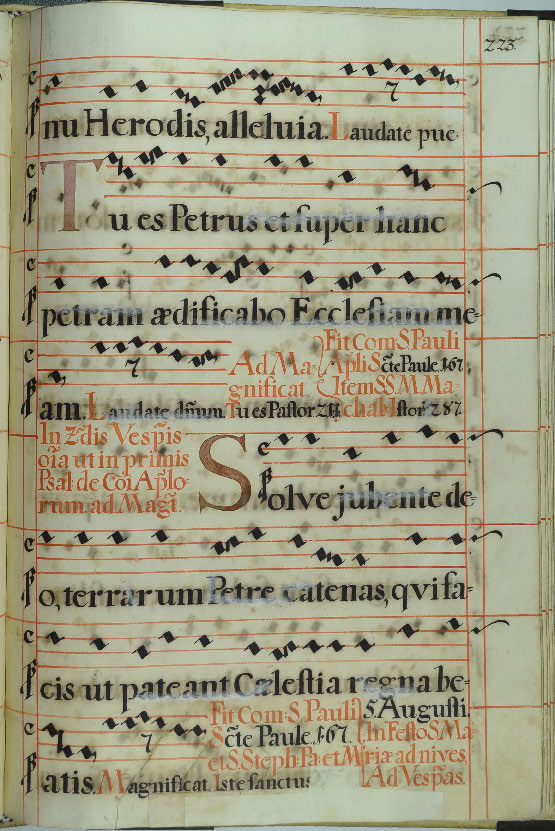 223.
nu Herodis, alleluia. Laudate pue-
Tu es Petrus et super hanc
petram ædificabo Ecclesiam me-
Fit Com S. Pauli
Ad Ma- Apli Scte Paule. 167.
gnificat Item SS. M. Ma-
am. Laudate dñum. Tu es Pastor Istor 287.
In 2.dis Vespis
oia ut in primis
Psal de Coi Aplo-
rum. ad Magt.
Solve jubente de-
o, terrarum Petre catenas, qvi fa-
cis ut pateant Cælestia regna be-
Fit Com. S. Pauli 5. Augusti.
Scte Paule. 167. In Festo S. Ma-
et S. Steph. Pa. et M riæ ad nives,
atis. Magnificat. Iste sanctus Ad Vespas.